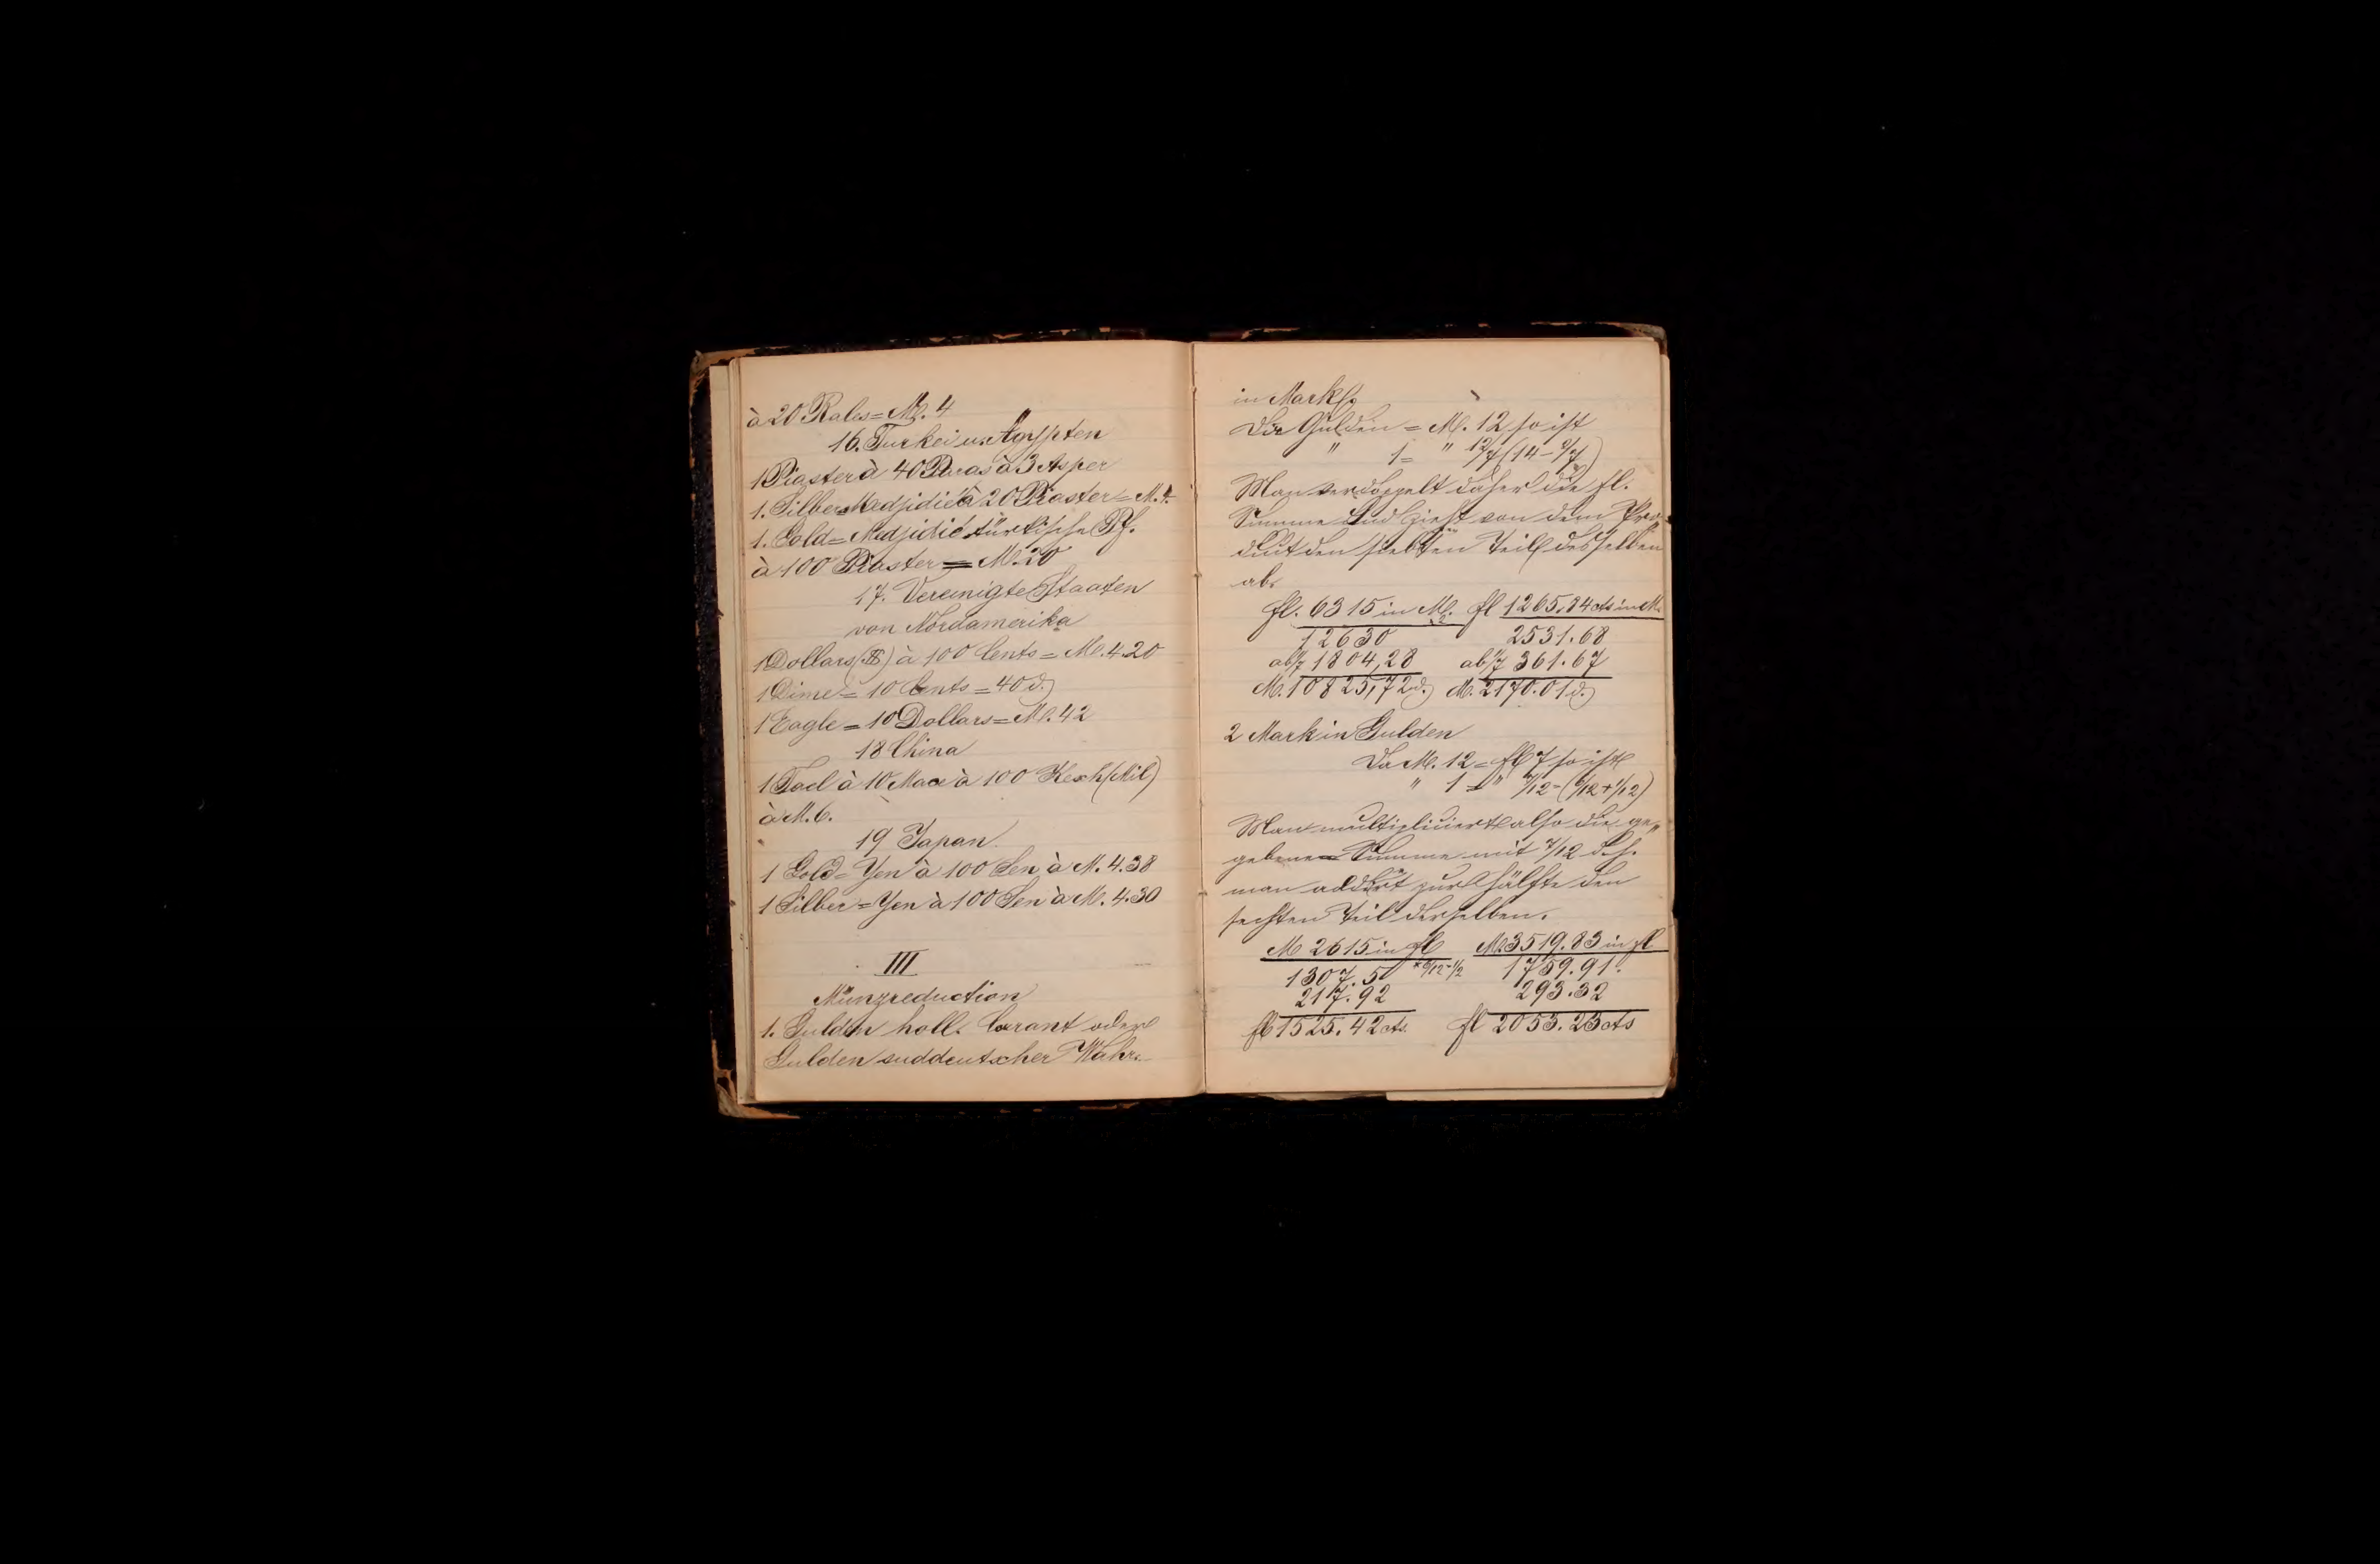 à 20 Rales = M. 4
16. Turkei u. Ägypten
1 Piaster à 40 Paras à 3 Asper
1. Silber Medjidié à 20 Piaster = M. 4.
1. Gold = Medjidié türkische Pf.
à 100 Piaster = M. 20
17. Vereinigte Staaten
von Nordamerika
1 Dollars ($) à 100 Cents = M. 4.20
1 Dime = 10 Cents = 40 d.
1 Eagle = 10 Dollars = M. 42
18 China
1 Tael à 10 Mace à 100 Kesh (Mil)
à M. 6.
19 Japan
1 Gold = Yen à 100 Sen à M. 4.38
1 Silber = Yen à 100 Sen à M. 4.30
III
Münzreduction
1. Gulden holl. Corant oder
Gulden suddeutscher Wahr.
in Mark
Gulden = M. 12 so ist
" 1 = " 12/7 (14 - 2/7)
Man verdoppelt daher die fl.
Summe und zieht von dem Pro
duct den siebten Teil desselben
ab.
fl. 6315 in M. fl 1265,84 cts in M.
12630 2531.68
ab 1/7 1804,28 ab 1/7 361.67
M. 10825,72 d. M. 2170.01 d.
2 Mark in Gulden
Da M. 12 = fl 7 so ist
" 1 = " 7/12 - (6/12 + 1/12)
Man multipliciert also die ge„
gebene Summe mit 7/12 d. h.
man addirt zur Hälfte den
sechsten Teil derselben.
M 2615 in fl M 3519.83 in fl
1307.5 * 6/12 = 1/2 1759.91.
217.92 293.32
fl 1525.42 cts. fl 2053.23 cts